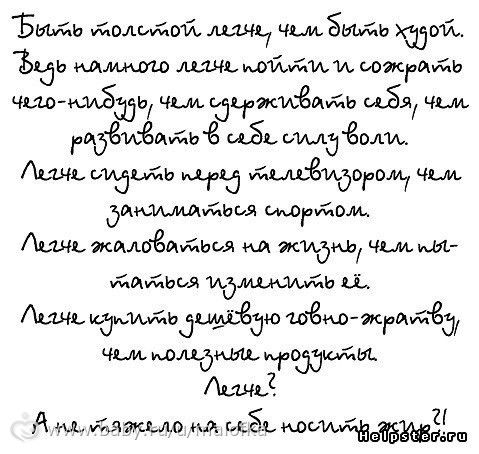 Быть толстой легче, чем быть худой.
Ведь намного легче пойти и сожрать
чего-нибудь, чем сдерживать себя, чем
развивать в себе силу воли.
Легче сидеть перед телевизором, чем
заниматься спортом.
Легче жаловаться на жизнь, чем пы-
таться изменить её.
Легче купить дешёвую говно-жратву,
чем полезные продукты.
Легче?
А не тяжело на себе носить жир?!
www.baby.ru/u/malofka
Helpster.ru